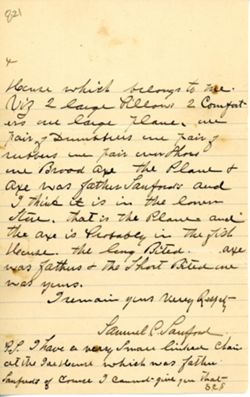 821
&
House which belongs to me.
Viz 2 large Pillows 2 Comfort-
ers one large Plane, one
Pair of Dumbells one pair of
rubbers one pair overshoes
one Broad Axe the Plane &
Axe was father Sanfords and
I think it is in the lower
Store. that is the Plane and
the axe is Probably in the fish
House. the long Bited axe
was fathers & the Short Bited one
was yours.
I remain yours Very Respty
Samuel C. Sanford
P.S. I have a very Small Chair
at the House which was father
Sanfords of Course I Cannot give you that
S.C.S